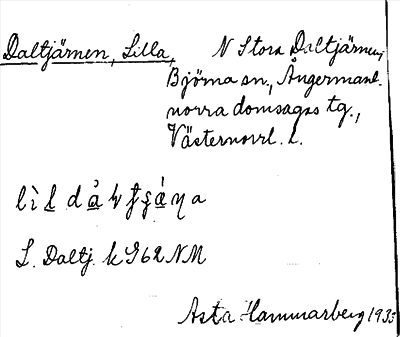 Daltjärnen, Lilla, N Stora Daltjärnen,
Björna sn., Ångermanl.
norra domsagas tg.,
Västernorrl. l.
L. Daltj. k G62 NM
Asta Hammarberg 1933